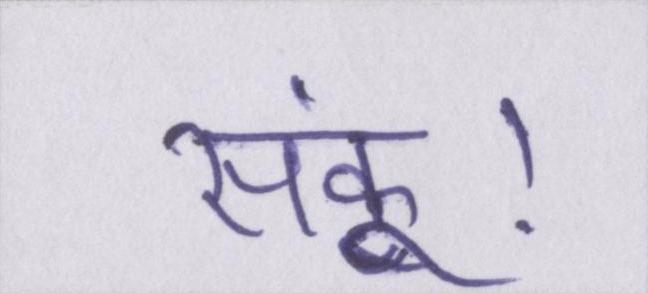 संकू!